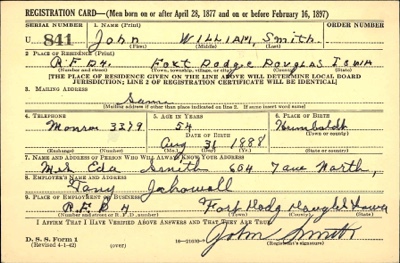 REGISTRATION CARD—(Men born on or after April 28, 1877 and on or before February 16, 1897)
SERIAL NUMBER 1. NAME (Print) ORDER NUMBER
U 841 John WILLIAM Smith
(First) (Middle) (Last)
2. PLACE OF RESIDENCE (Print)
R.F.D4. Fort Dodge Douglas IOWA
(Number and street) (Town, township, village, or city) (County) (State)
[THE PLACE OF RESIDENCE GIVEN ON THE LINE ABOVE WILL DETERMINE LOCAL BOARD
JURISDICTION; LINE 2 OF REGISTRATION CERTIFICATE WILL BE IDENTICAL]
3. MAILING ADDRESS
Same
(Mailing address if other than place indicated on line 2. If same insert word same)
4. TELEPHONE 5. AGE IN YEARS 6. PLACE OF BIRTH
Monroe 3279 54 Humboldt
DATE OF BIRTH (Town or county)
Aug 31 1888
(Exchange) (Number) (Mo.) (Day) (Yr.) (State or country)
7. NAME AND ADDRESS OF PERSON WHO WILL ALWAYS KNOW YOUR ADDRESS
Mrs Eda Smith 604 North,
8. EMPLOYER'S NAME AND ADDRESS
Tony
9. PLACE OF EMPLOYMENT OR BUSINESS
R.F.D 4 Fort Dodg Iowa
(Number and street or R. F. D. number) (Town) (County) (State)
I AFFIRM THAT I HAVE VERIFIED ABOVE ANSWERS AND THAT THEY ARE TRUE.
John Smith
D. S. S. Form 1
(Revised 4-1-42) (over) (Registrant's signature)